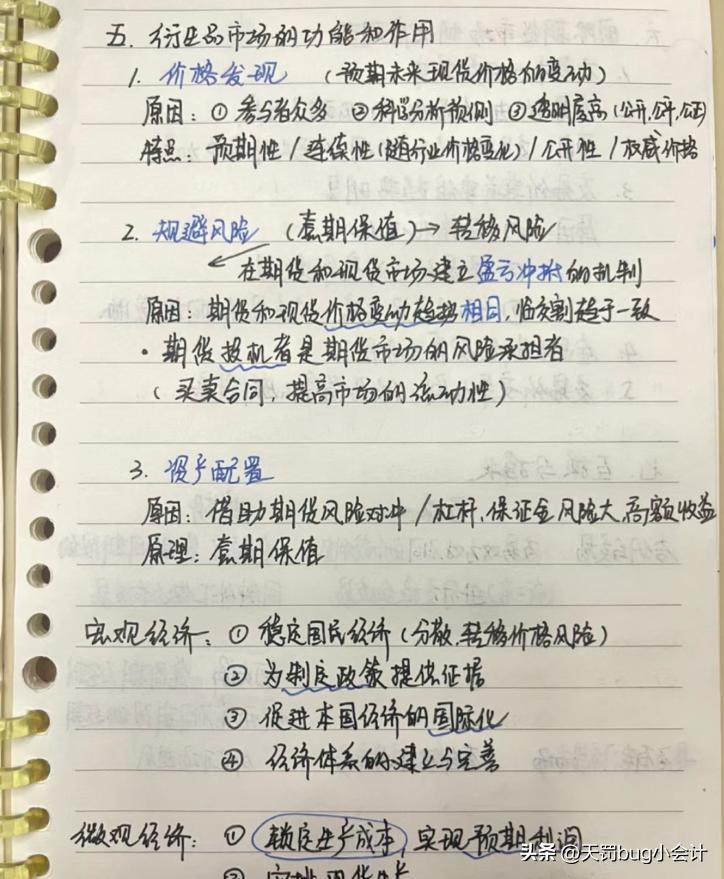 五. 衍生品市场的功能和作用
1. 价格发现 (预期未来现货价格的变动)
原因: ① 参与者众多 ② 科学分析预测 ③ 透明度高(公开,公平,公正)
特点: 预期性 / 连续性(随行业价格变化) / 公开性 / 权威价格
2. 规避风险 (套期保值) → 转移风险
在期货和现货市场建立盈亏冲抵的机制
原因: 期货和现货价格变动趋势相同, 临交割趋于一致
· 期货投机者是期货市场的风险承担者
( 买卖合同, 提高市场的流动性 )
3. 资产配置
原因: 借助期货风险对冲 / 杠杆、保证金风险大、高额收益
原理: 套期保值
宏观经济: ① 稳定国民经济 (分散、转移价格风险)
② 为制定政策提供证据
③ 促进本国经济的国际化
④ 经济体系的建立与完善
微观经济: ① 锁定生产成本, 实现预期利润
头条 @天罚bug小会计